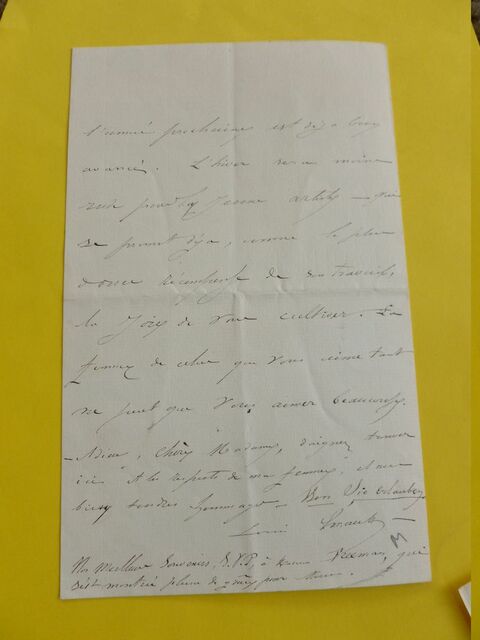 l'année prochaine est déjà bien
avancé. L'hiver sera moins
rude pour la jeune artiste — qui
se promet déjà, comme la plus
douce récompense de ses travaux,
la joie de vous cultiver. La
femme de celui que vous aimez tant
ne peut que vous aimer beaucoup.
— Adieu, chère Madame, daignez trouver
ici les respects de ma femme, et mes
tendres hommages
Louis Enault —
Mes meilleurs souvenirs, S.V.P., à qui
s'est montré pleine de grâce pour